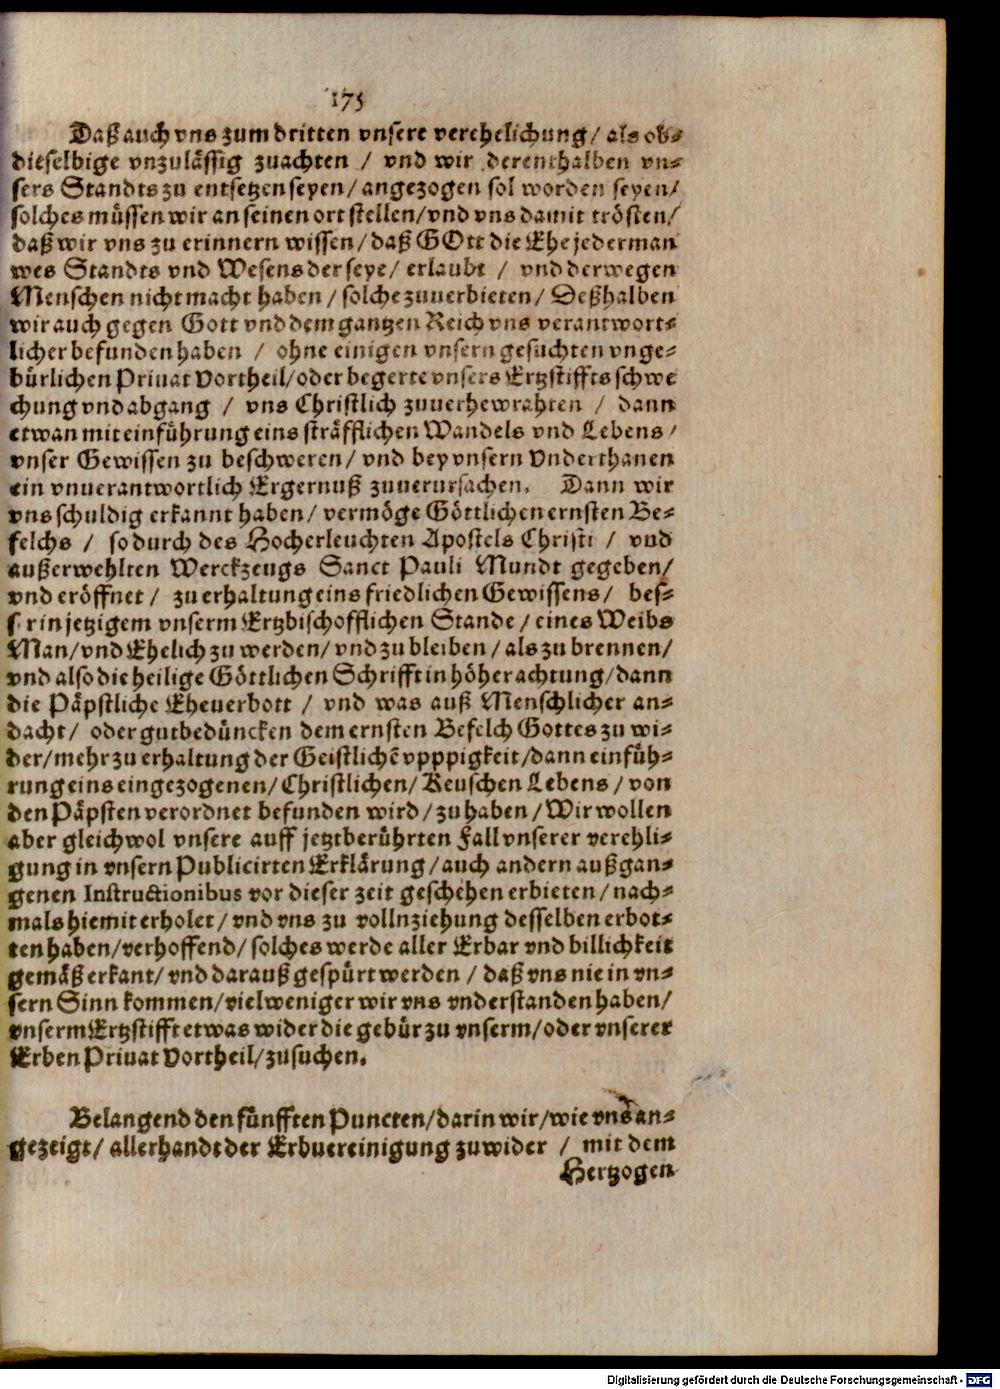 175
Daß auch vns zum dritten vnsere verehelichung/ als ob-
dieselbige vnzulässig zuachten / vnd wir derenthalben vn-
sers Standts zu entsetzen seyen/ angezogen sol worden seyen/
solches müssen wir an seinen ort stellen/ vnd vns damit trösten/
daß wir vns zu erinnern wissen/ daß GOtt die Ehe jederman
wes Standts vnd Wesens der seye/ erlaubt / vnd derwegen
Menschen nicht macht haben / solche zuuerbieten/ Deßhalben
wir auch gegen Gott vnd dem gantzen Reich vns verantwort-
licher befunden haben / ohne einigen vnsern gesuchten vnge-
bürlichen Priuat Vortheil/ oder begerte vnsers Ertzstiffts schwe
chung vnd abgang / vns Christlich zuuerhewrahten / dann
etwan mit einführung eins sträfflichen Wandels vnd Lebens/
vnser Gewissen zu beschweren/ vnd bey vnsern Vnderthanen
ein vnuerantwortlich Ergernuß zuuerursachen. Dann wir
vns schuldig erkannt haben/ vermöge Göttlichen ernsten Be-
felchs / so durch des Hocherleuchten Apostels Christi / vnd
außerwehlten Werckzeugs Sanct Pauli Mundt gegeben/
vnd eröffnet / zu erhaltung eins friedlichen Gewissens/ bes-
s rin jetzigem vnserm Ertzbischofflichen Stande / eines Weibs
Man/ vnd Ehelich zu werden/ vnd zu bleiben / als zu brennen/
vnd also die heilige Göttlichen Schrifft in höher achtung/ dann
die Päpstliche Eheuerbott / vnd was auß Menschlicher an-
dacht/ oder gutbedüncken dem ernsten Befelch Gottes zu wi-
der/ mehr zu erhaltung der Geistlichē vpppigkeit/ dann einfüh-
rung eins eingezogenen/ Christlichen/ Keuschen Lebens / von
den Päpsten verordnet befunden wird/ zu haben/ Wir wollen
aber gleichwol vnsere auff jetztberührten Fall vnserer verehli-
gung in vnsern Publicirten Erklärung/ auch andern außgan-
genen Instructionibus vor dieser zeit geschehen erbieten/ nach-
mals hiemit erholet / vnd vns zu vollnziehung desselben erbot-
ten haben/ verhoffend/ solches werde aller Erbar vnd billichkeit
gemäß erkant/ vnd darauß gespürt werden / daß vns nie in vn-
sern Sinn kommen/ viel weniger wir vns vnderstanden haben/
vnserm Ertzstifft etwas wider die gebür zu vnserm/ oder vnserer
Erben Priuat Vortheil/ zusuchen.
Belangend den fünfften Puncten/ darin wir/ wie vns an-
gezeigt/ allerhandt der Erbuereinigung zuwider / mit dem
Hertzogen
Digitalisierung gefördert durch die Deutsche Forschungsgemeinschaft - DFG